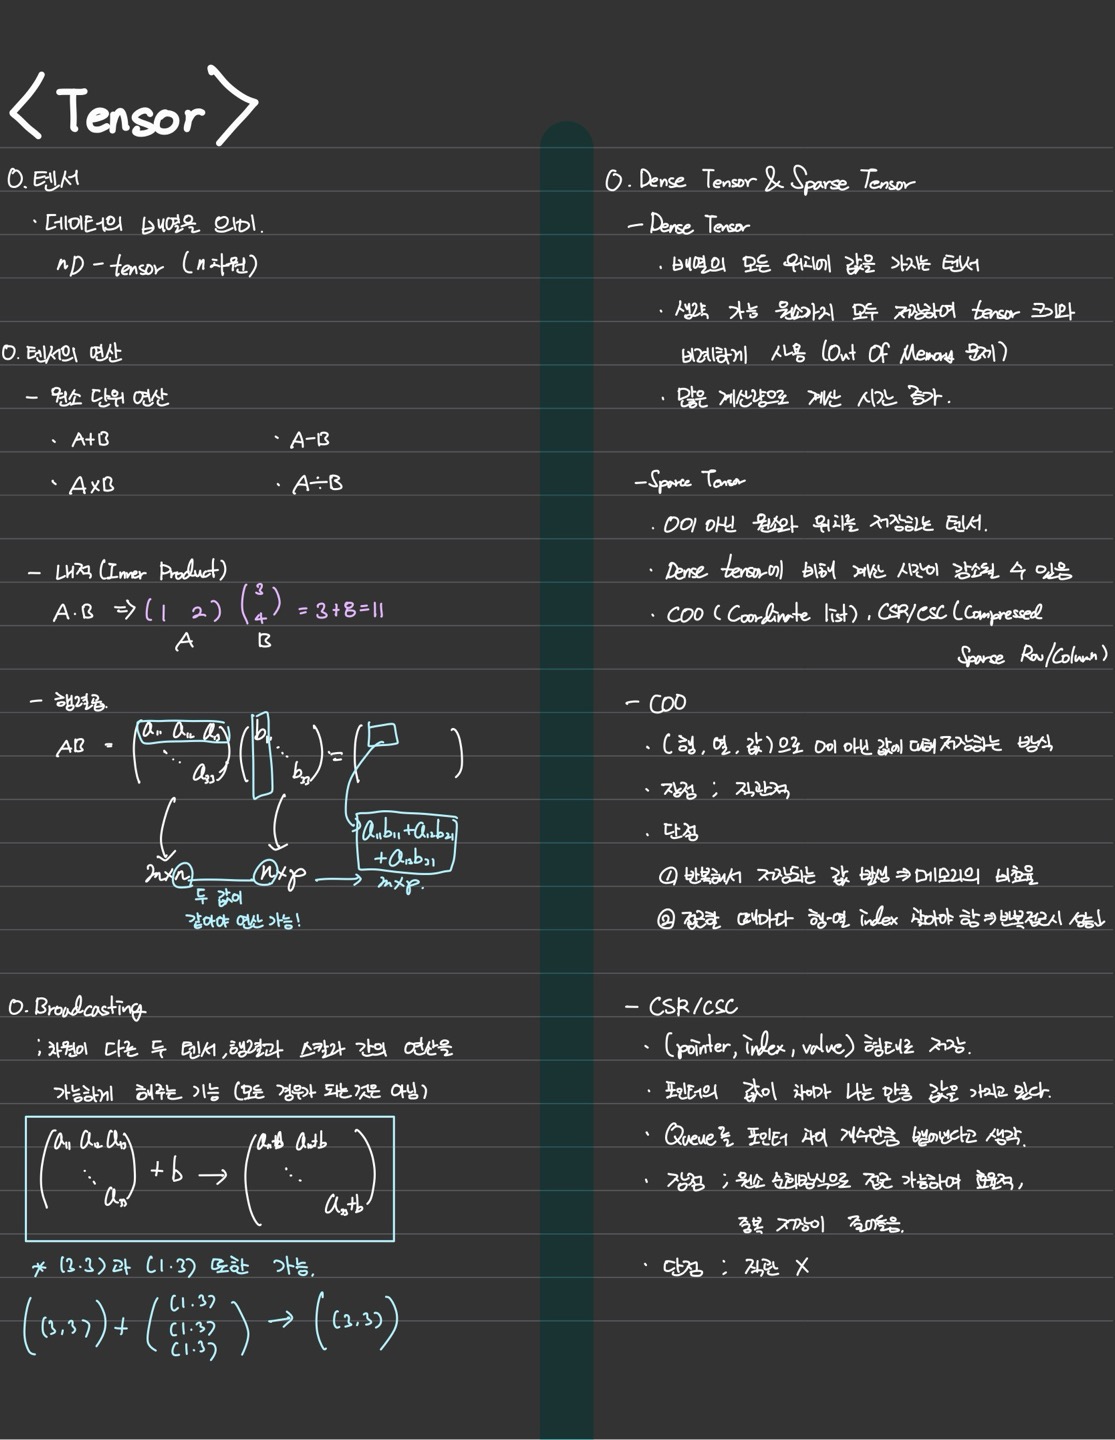 <Tensor>
O. 텐서
· 데이터의 배열을 의미.
nD - tensor (n차원)
O. 텐서의 연산
- 원소 단위 연산
· A+B · A-B
· A×B · A÷B
- 내적 (Inner Product)
A·B => (1 2) (3 4) = 3+8=11
A B
- 행렬곱.
AB = (a₁₁ a₁₂ a₁₃ ⋱ a₃₃) (b₁₁ ⋱ b₃₃) = ( )
a₁₁b₁₁+a₁₂b₂₁
+a₁₂b₃₁
m×n n×p → m×p.
두 값이
같아야 연산 가능!
O. Broadcasting
; 차원이 다른 두 텐서, 행렬과 스칼라 간의 연산을
가능하게 해주는 기능 (모든 경우가 되는 것은 아님)
(a₁₁ a₁₂ a₁₃ ⋱ a₃₃) + b → (a₁₁+b a₁₂+b ⋱ a₃₃+b)
* (3·3)과 (1·3) 또한 가능.
((3,3)) + ((1·3) (1·3) (1·3)) → ((3,3))
O. Dense Tensor & Sparse Tensor
- Dense Tensor
· 배열의 모든 위치에 값을 가지는 텐서
· 생략 가능 원소까지 모두 저장하여 tensor 크기와
비례하게 사용 (Out Of Memory 문제)
· 많은 계산량으로 계산 시간 증가.
- Sparse Tensor
· 0이 아닌 원소와 위치를 저장하는 텐서.
· Dense tensor에 비해 계산 시간이 감소될 수 있음
· COO (Coordinate list), CSR/CSC (Compressed
Sparse Row/Column)
- COO
· (행, 열, 값)으로 0이 아닌 값에 대해 저장하는 방식
· 장점 ; 직관적
· 단점
① 반복해서 저장되는 값 발생 ⇒ 메모리의 비효율
② 접근할 때마다 행-열 index 찾아야 함 ⇒ 반복접근시 성능↓
- CSR/CSC
· (pointer, index, value) 형태로 저장.
· 포인터의 값이 차이가 나는 만큼 값을 가지고 있다.
· Queue를 포인터 차이 개수만큼 뱉어낸다고 생각.
· 장점 ; 원소 순회방식으로 접근 가능하여 효율적,
중복 저장이 줄어듦음.
· 단점 ; 직관 X